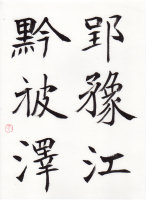 郢豫江
黔被澤